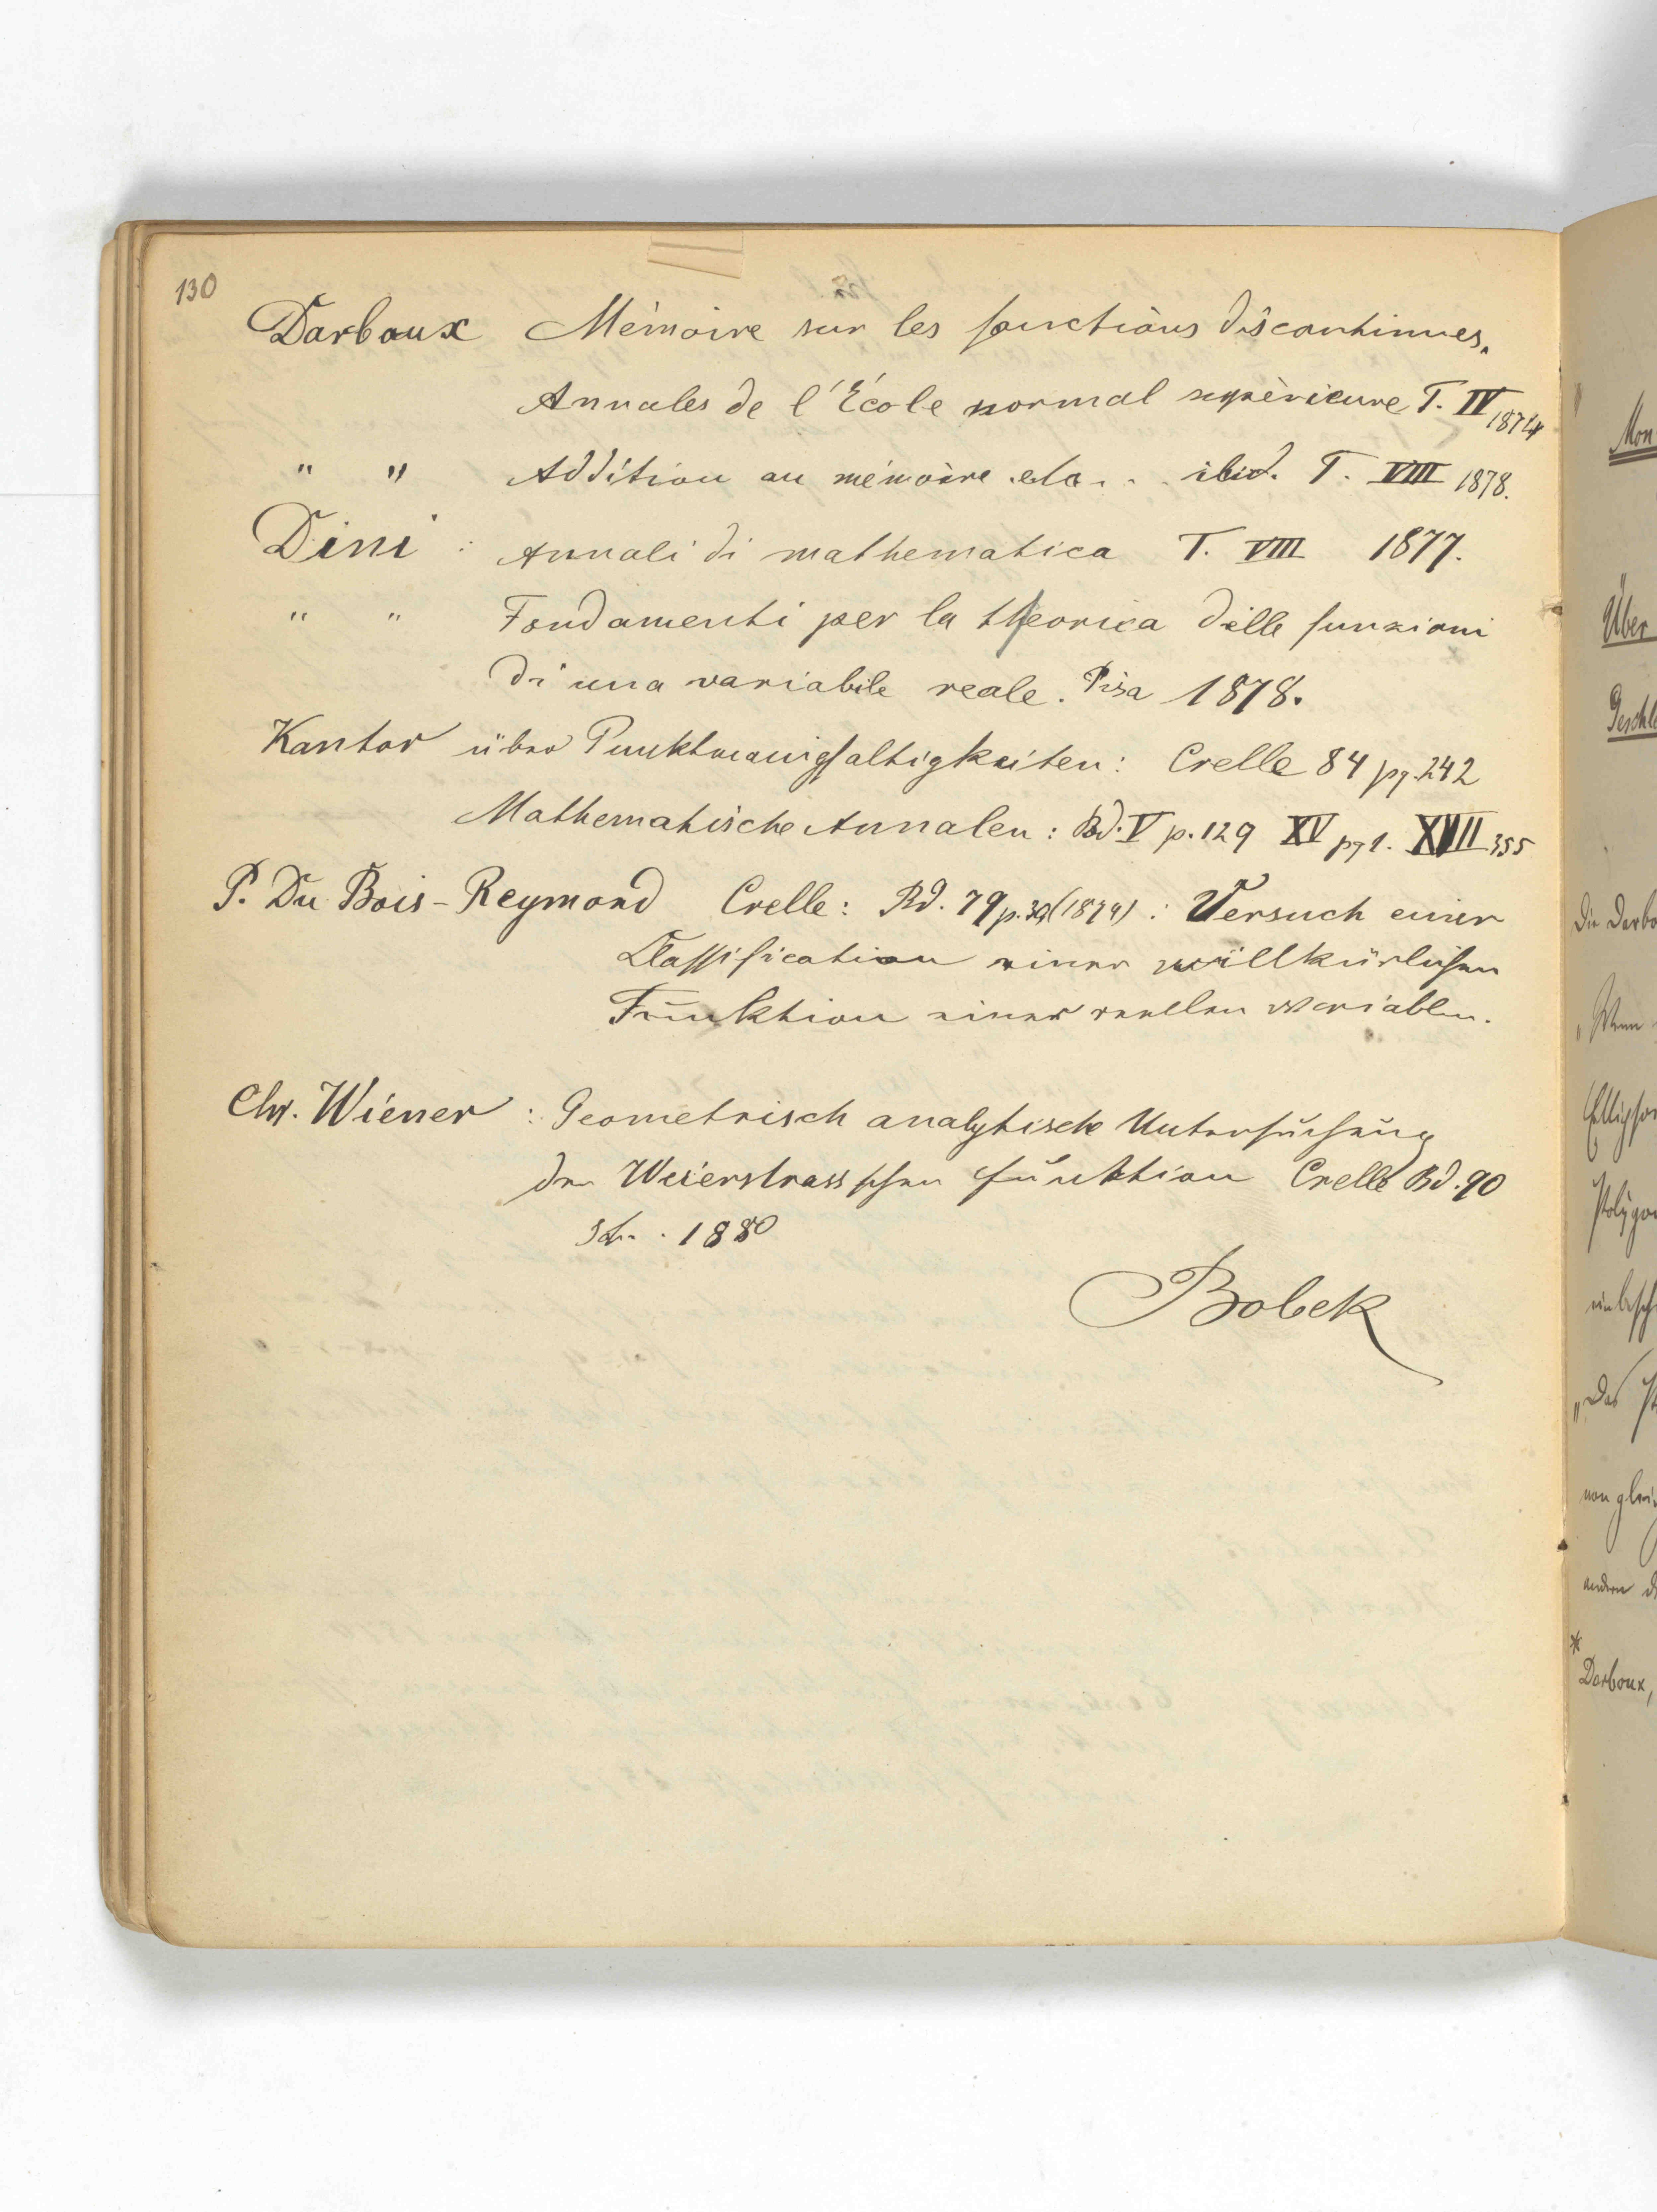 130
Darboux Mémoire sur les fonctions discontinues.
Annales de l'École normal supèrieure T. IV 1874
" " Addition au mémoire etc . . ibid. T. VIII 1878.
Dini : Annali di mathematica T. VIII 1877.
" " Fondamenti per la theorica delle funzioni
di una variabile reale. Pisa 1878.
Kantor über Punktmanigfaltigkeiten: Crelle 84 pg. 242
Mathematische Annalen: Bd. V p. 129 XV pg 1. XVII 355
P. Du Bois-Reymond Crelle: Bd. 79 (1874) : Versuch einer
Classification einer willkürlichen
Funktion einer reellen Variablen.
Chr. Wiener : Geometrisch analytische Untersuchung
der Weierstrassschen Funktion Crelle Bd. 90
1880
Bobek
Mon
Über
Die Darbo
„Wenn
Ellipso
Polygo
„Das
von glei
andern
*
Darboux,